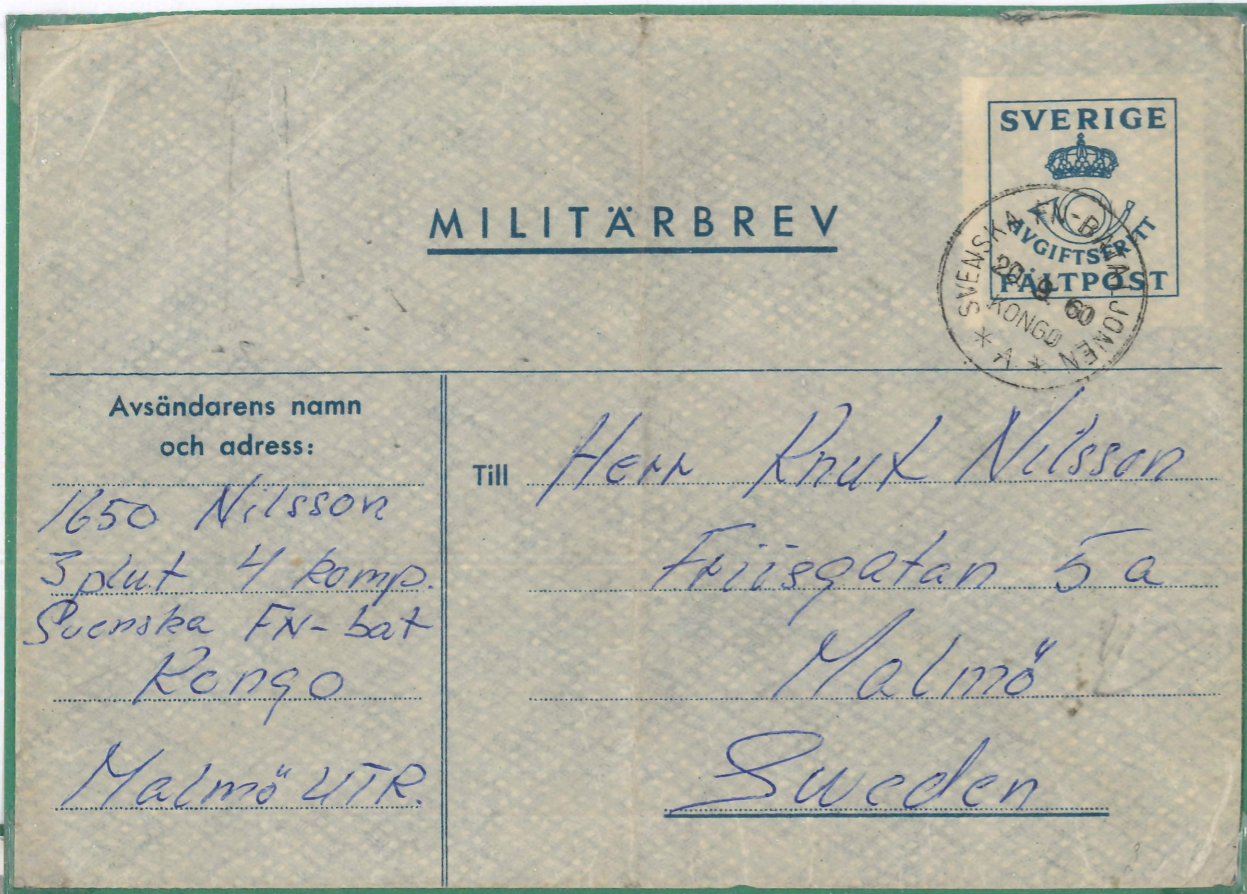 SVERIGE
AVGIFTSFRITT
FÄLTPOST
SVENSKA FN-BATALJONEN
20.9.60
KONGO
* A *
MILITÄRBREV
Avsändarens namn
och adress:
1650 Nilsson
3 plut 4 komp.
Svenska FN-bat
Kongo
Malmö UTR.
Till Herr Knut Nilsson
Friisgatan 5a
Malmö
Sweden